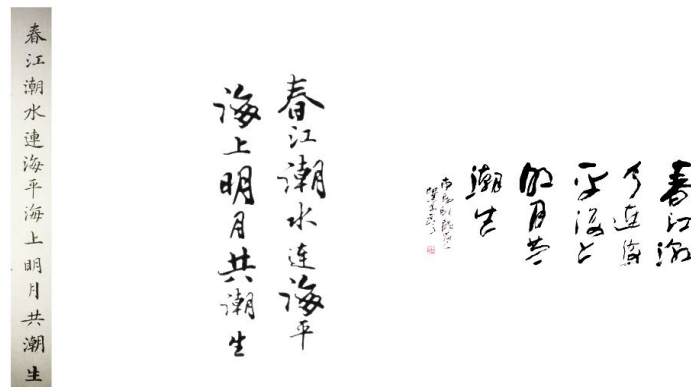 春江潮水連海平海上明月共潮生
春江潮水连海平
海上明月共潮生
春江潮
水连海
平海上
明月共
潮生